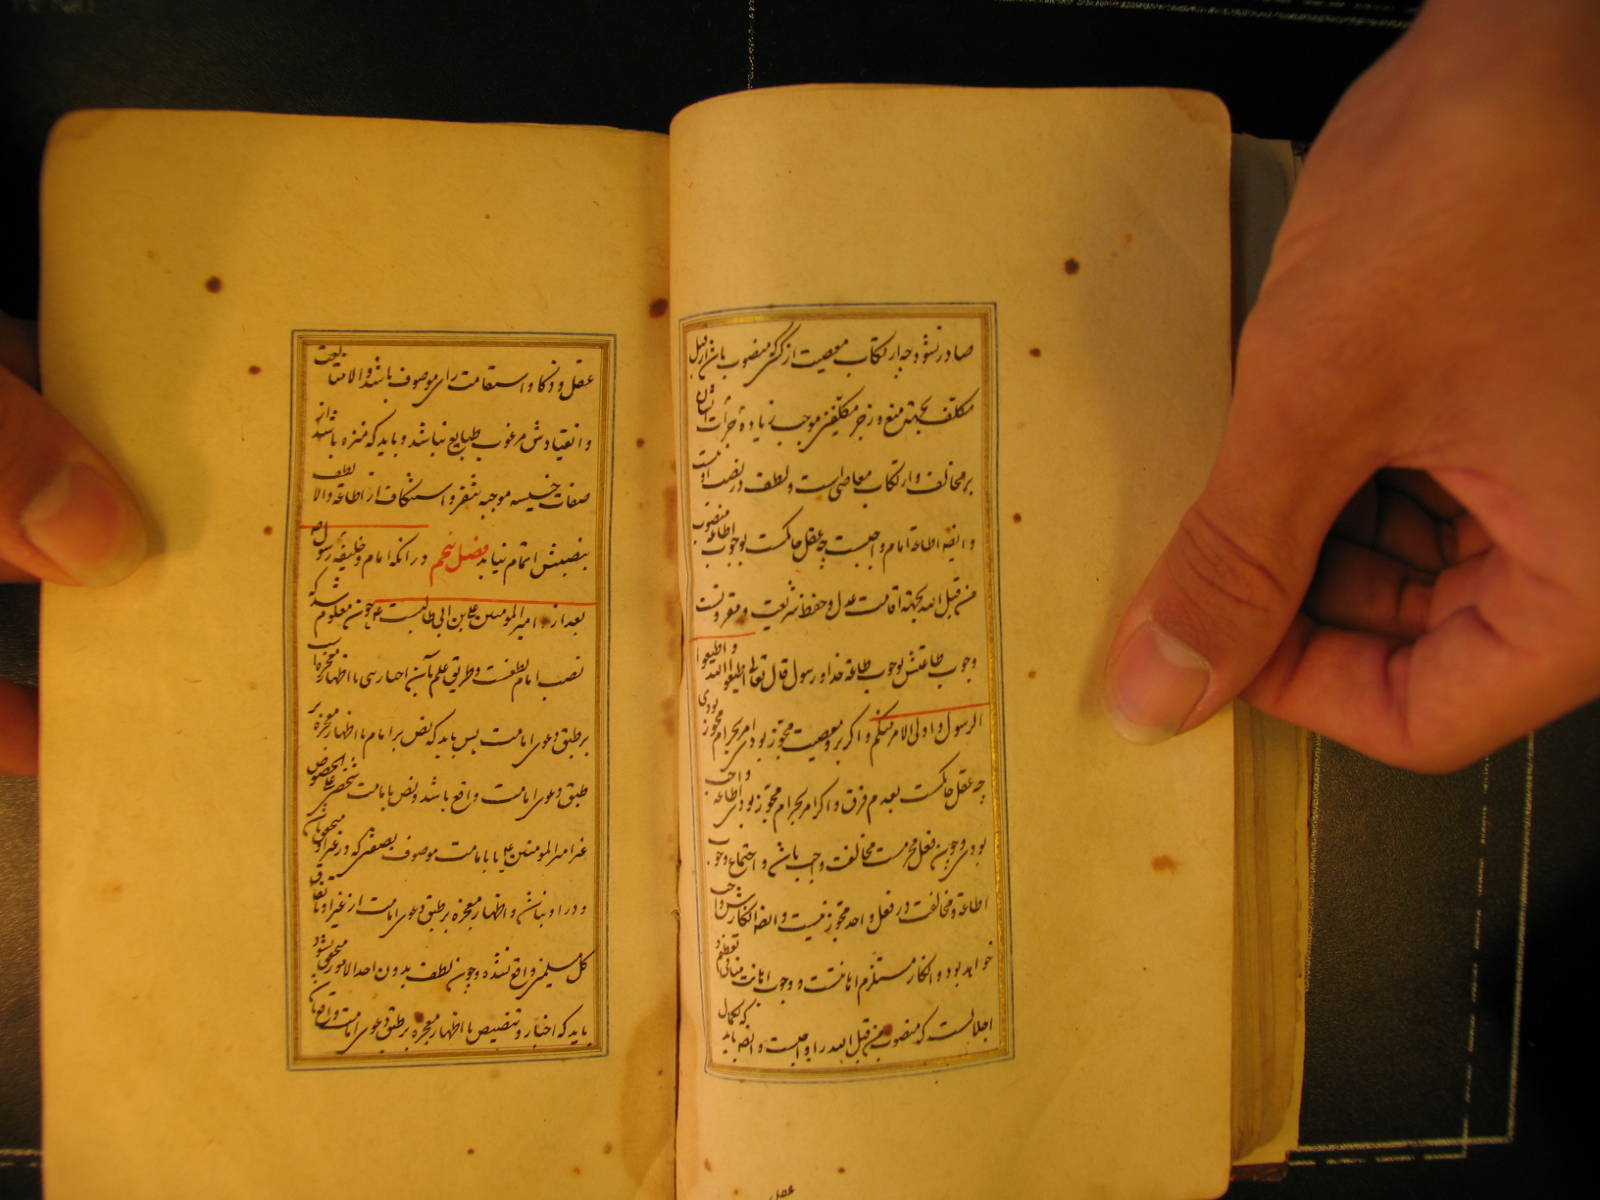 صادر نشود چه ارتکاب معصیت از کسی منصوب باشد از قبل
مکلف بجهته منع و زجر مکلفین موجب زیاده جرأت ایشان
بر مخالفت و ارتکاب معاصی است و لطف در نصب او نیست
و ایضا اطاعة امام واجبست چه عقل حاکمست بوجوب اطاعة منصوب
من قبل الله بجهته اقامت عدل و حفظ شریعت و مقرونست
وجوب طاعتش بوجوب طاعة خدا و رسول قال تعالی اطیعوا الله و اطیعوا
الرسول و اولی الامر منکم و اگر برو معصیت مجوز بودی امر بحرام مجوز بودی
چه عقل حاکمست بعدم فرق و اگر امر بحرام مجوز بودی اطاعة واجب
بودی و چون فعل محرمست مخالفت واجب باشد و اجتماع وجوب
اطاعة و مخالفت در فعل واحد مجوز نیست و ایضا انکارش واجب
خواهد بود و انکار مستلزم اهانتست و وجوب اهانت منافی تعظیم
اجلالست که منصوب من قبل الله را واجبست و ایضا باید که بکمال
عقل
عقل و ذکا و استقامت رای موصوف باشد والا متابعت
و انقیادش مرغوب طبایع نباشد و باید که منزه باشد از
صفات خسیسه موجبه تنفر و استنکاف از اطاعة والا لطف
بنصبش اتمام نیابد فصل پنجم در انکه امام و خلیفه رسول
بعد از امیر المومنین علی بن ابی طالبست ع چون معلوم شد که
نصب امام لطفست و طریق علم بآن اخبار رسی با اظهار معجزه است
بر طبق دعوی امامت پس باید که نص بر امام یا اظهار معجزه بر
طبق دعوی امامت واقع باشد و نص بامامت شخصی علی الخصوص
غیر امیر المومنین ع یا بامامت موصوف بصفتی که در غیر او متحقق باشد
و در او نباشد و اظهار معجزه بر طبق دعوی امامت از غیر او باتفاق
کل مسلمین واقع نشده و چون لطف بدون احد الامور متحقق نشود
باید که اخبار و تنصیص با اظهار معجزه بر طبق دعوی امامت واقع باشد